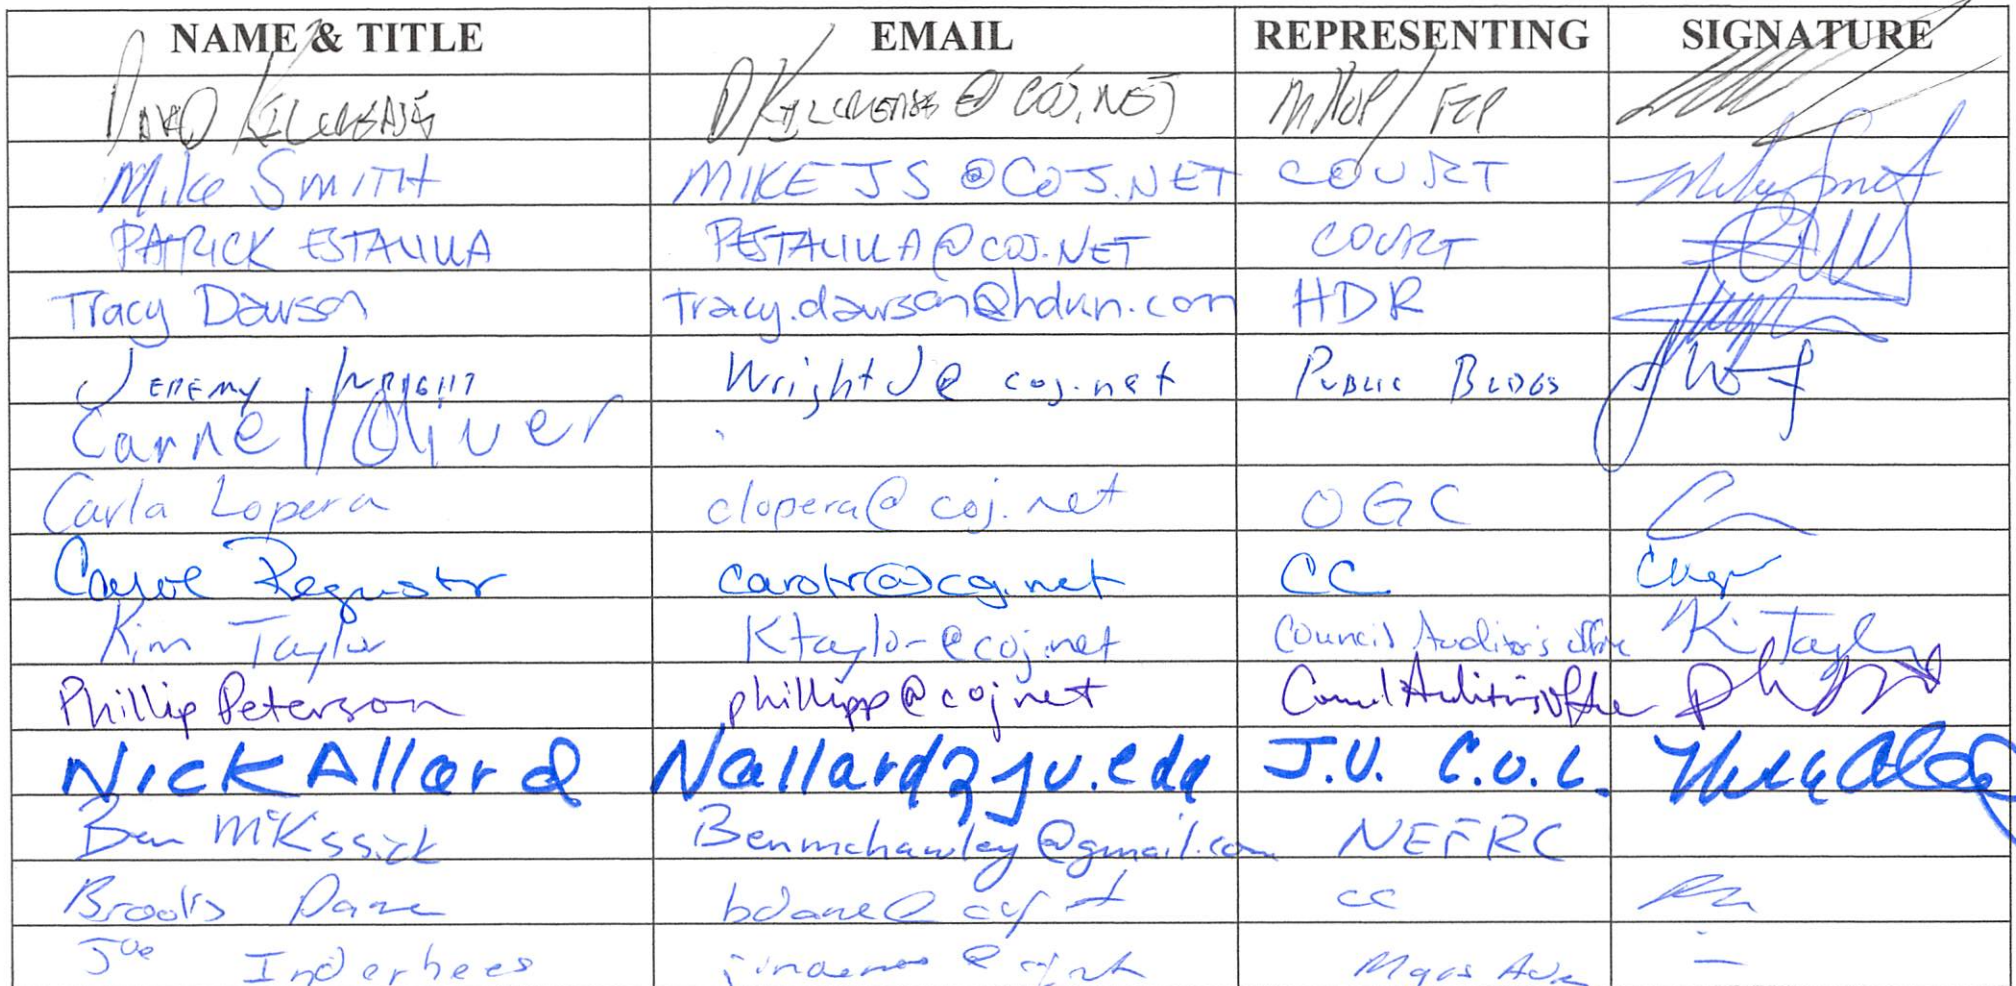 NAME & TITLE EMAIL REPRESENTING SIGNATURE
DAVID KILCREASE DKILCREASE@COJ.NET
Mike SMITH MIKEJS@COJ.NET COURT
PATRICK ESTALILLA PESTALILLA@COJ.NET COURT
Tracy Dawson HDR
JEREMY WRIGHT WrightJ@coj.net PUBLIC BLDGS
Carnell Oliver
Carla Lopera clopera@coj.net OGC
carolr@coj.net CC
Kim Taylor Ktaylor@coj.net Council Auditor's office K. Taylor
Phillip Peterson phillipp@coj.net Council Auditor's Office
Nick Allard Nallard2ju.edu J.U. C.O.L.
Ben McKissick Benmchawley@gmail.com NEFRC
Brooks Dane cc
Joe Inderhees